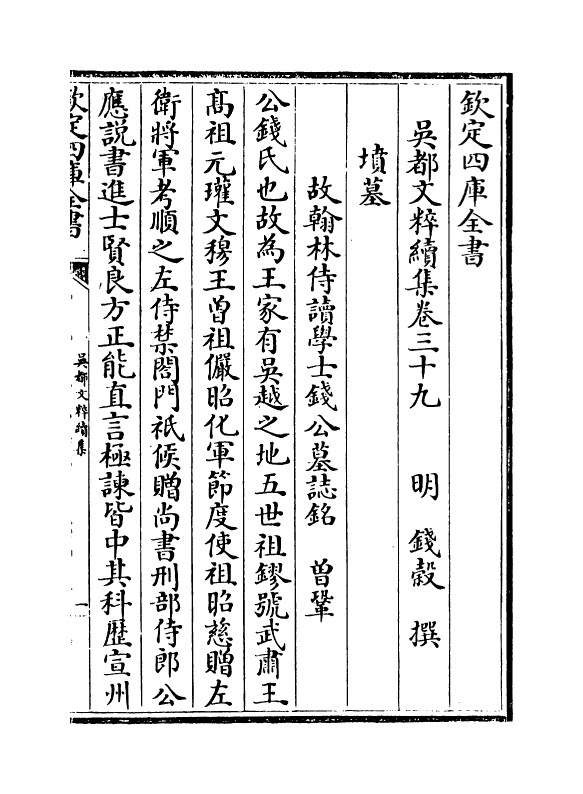 欽定四庫全書
吳都文粹續集卷三十九 明 錢穀 撰
墳墓
故翰林侍讀學士錢公墓誌銘 曾鞏
公錢氏也故為王家有吳越之地五世祖鏐號武肅王
髙祖元瓘文穆王曾祖儼昭化軍節度使祖昭慈贈左
衛將軍考順之左侍禁閤門祇候贈尚書刑部侍郎公
應説書進士賢良方正能直言極諫皆中其科歷宣州
欽定四庫全書
吳都文粹續集
一